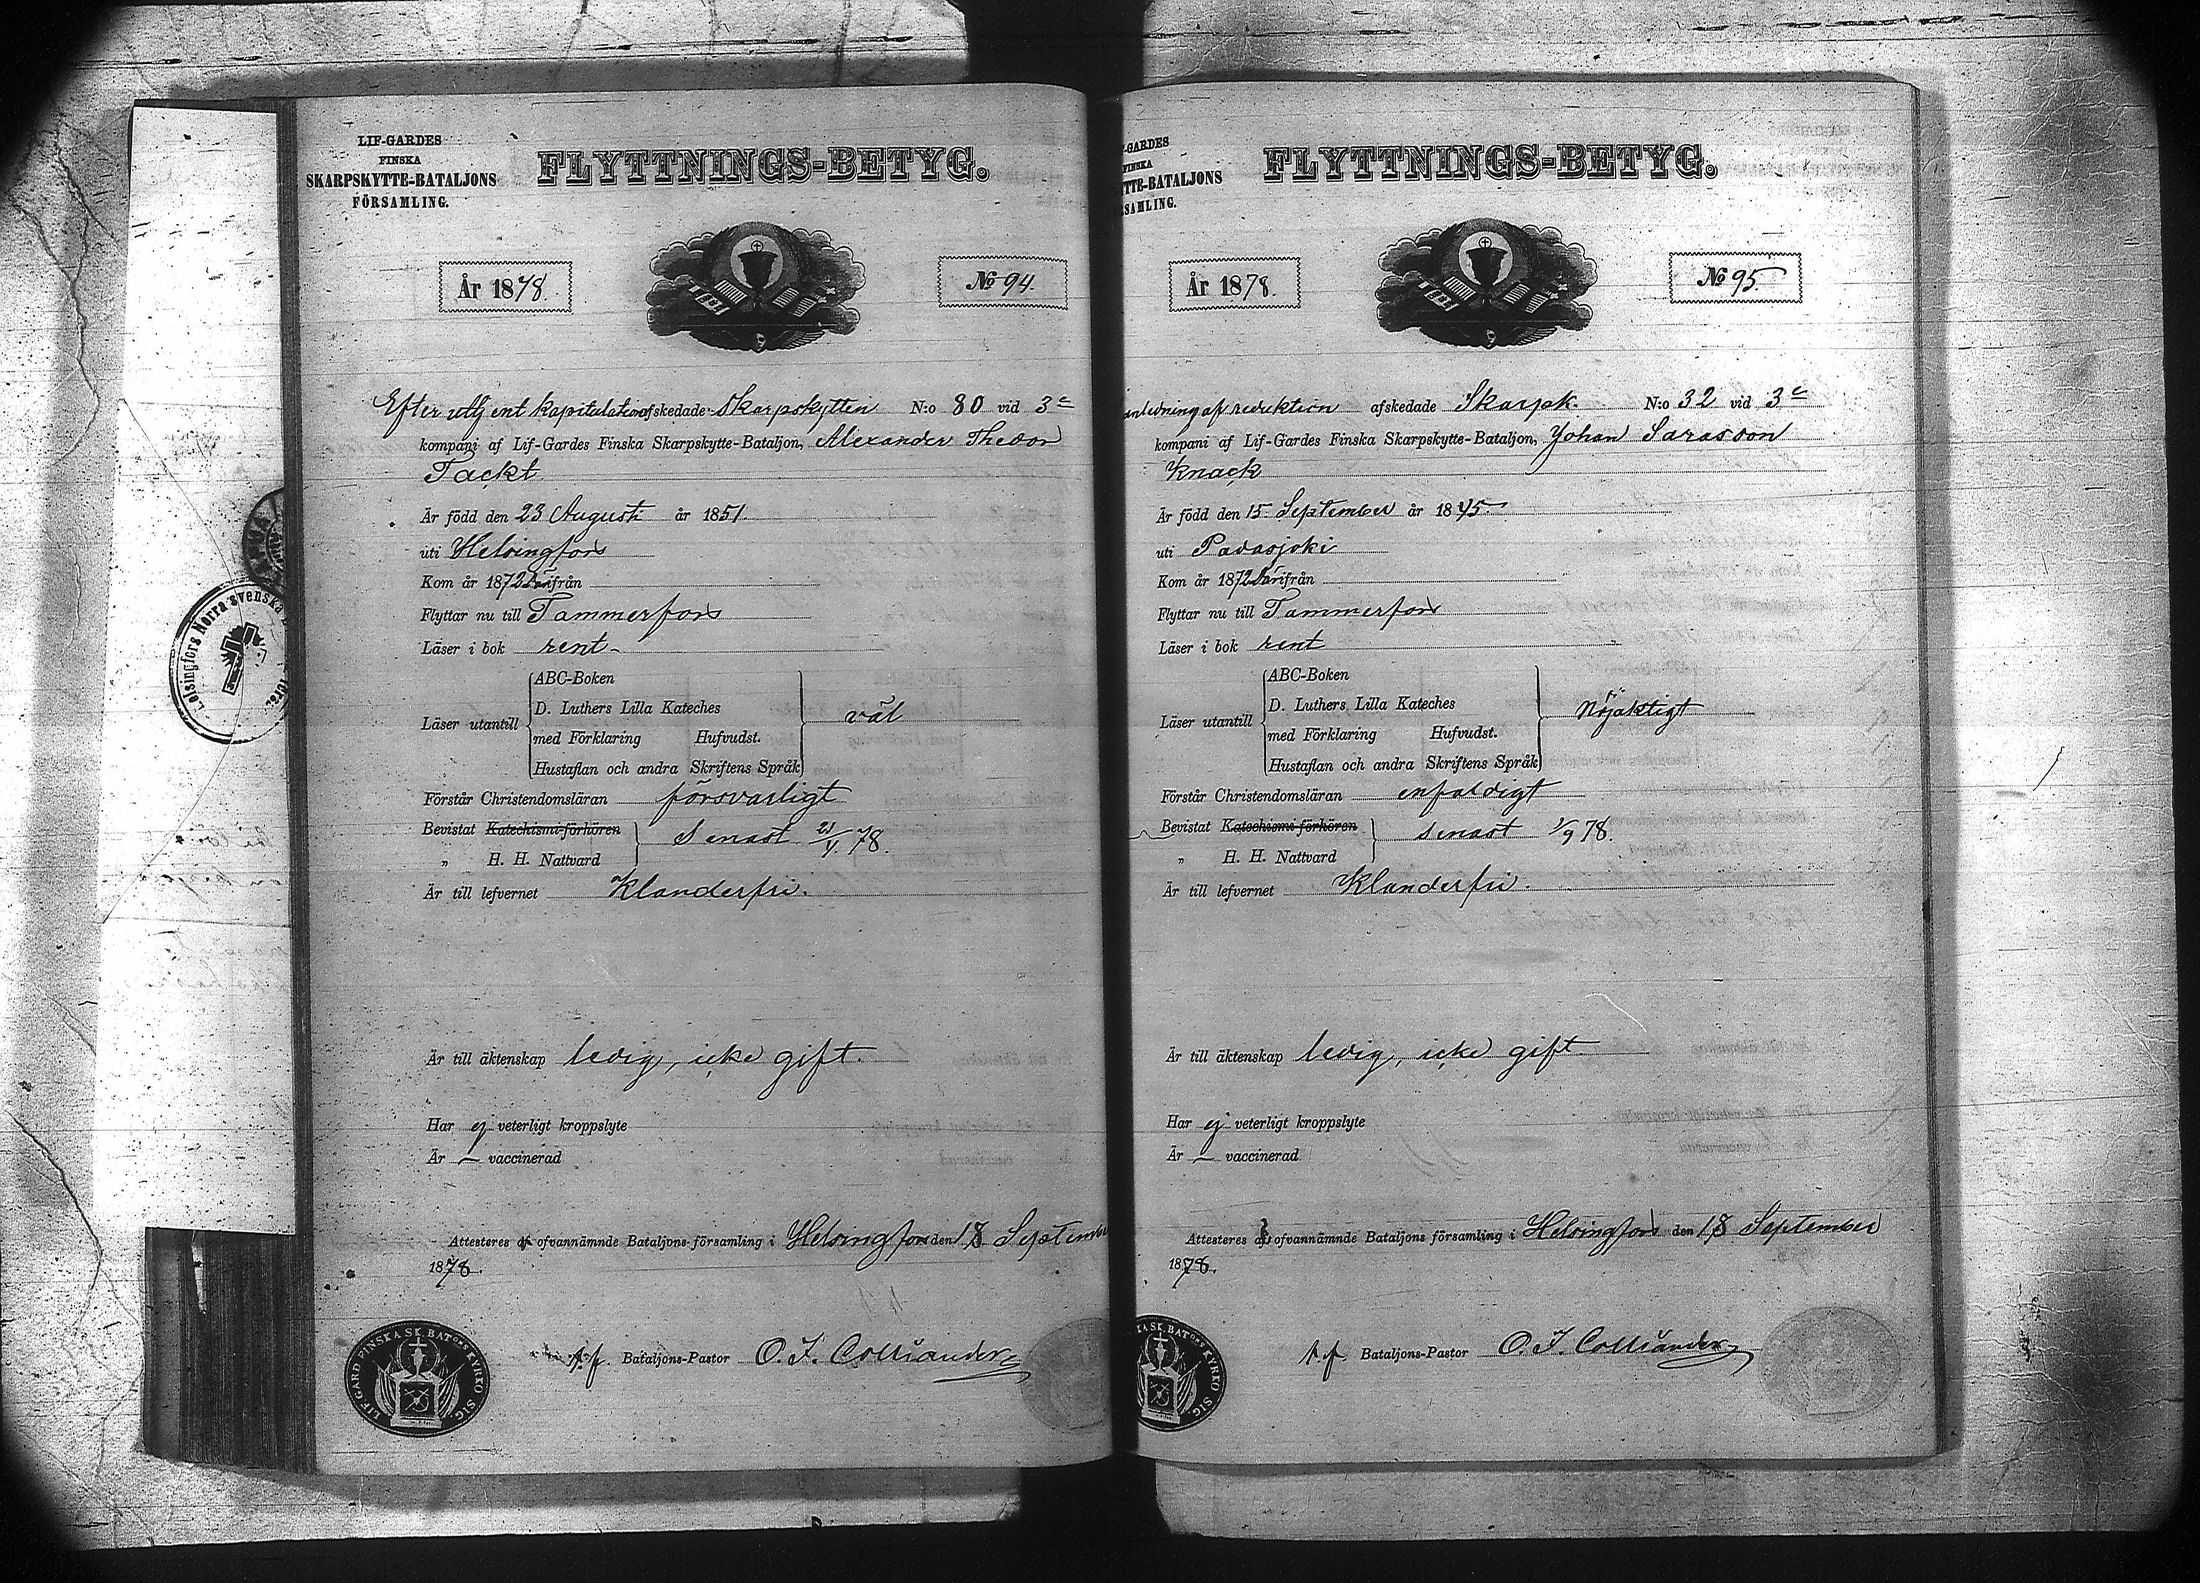 LIF-GARDES
FINSKA
SKARPSKYTTE-BATALJONS
FÖRSAMLING.
FLYTTNINGS-BETYG.
År 1878.
No 94.
Efter uttjent kapitulation afskedade Skarpskytten N:o 80 vid 3e
kompani af Lif-Gardes Finska Skarpskytte-Bataljon, Alexander Theodor
Tackt
Är född den 23 Augusti år 1851.
uti Helsingfors
Kom år 1872 Därifrån
Flyttar nu till Tammerfors
Läser i bok rent
Läser utantill
ABC-Boken
D. Luthers Lilla Kateches
med Förklaring Hufvudst.
Hustaflan och andra Skriftens Språk
väl
Förstår Christendomsläran försvarligt
Bevistat Katechismi-förhören
„ H. H. Nattvard
senast 78.
Är till lefvernet Klanderfri.
Är till äktenskap ledig, icke gift.
Har ej veterligt kroppslyte
Är — vaccinerad
Attesteres af ofvannämnde Bataljons-församling i Helsingfors den 18 September
1878.
Bataljons-Pastor O. I. Colliander
LIF. GARD FINSKA SK. BATons KYRKO SIG.
Helsingfors Norra svenska
-GARDES
FINSKA
TTE-BATALJONS
RSAMLING.
FLYTTNINGS-BETYG.
År 1878.
No 95
anledning af reduktion afskedade Skarpsk. N:o 32 vid 3e
kompani af Lif-Gardes Finska Skarpskytte-Bataljon, Johan Sarasson
Knack
Är född den 15 September år 1845.
uti Padasjoki
Kom år 1872 Därifrån
Flyttar nu till Tammerfors
Läser i bok rent
Läser utantill
ABC-Boken
D. Luthers Lilla Kateches
med Förklaring Hufvudst.
Hustaflan och andra Skriftens Språk
Nöjaktigt
Förstår Christendomsläran enfaldigt
Bevistat Katechismi-förhören
„ H. H. Nattvard
senast 1/9 78.
Är till lefvernet Klanderfri.
Är till äktenskap ledig, icke gift.
Har ej veterligt kroppslyte
Är — vaccinerad
Attesteres af ofvannämnde Bataljons församling i Helsingfors den 18 September
1878.
Bataljons-Pastor O. I. Colliander
KA SK. BATons KYRKO SIG.